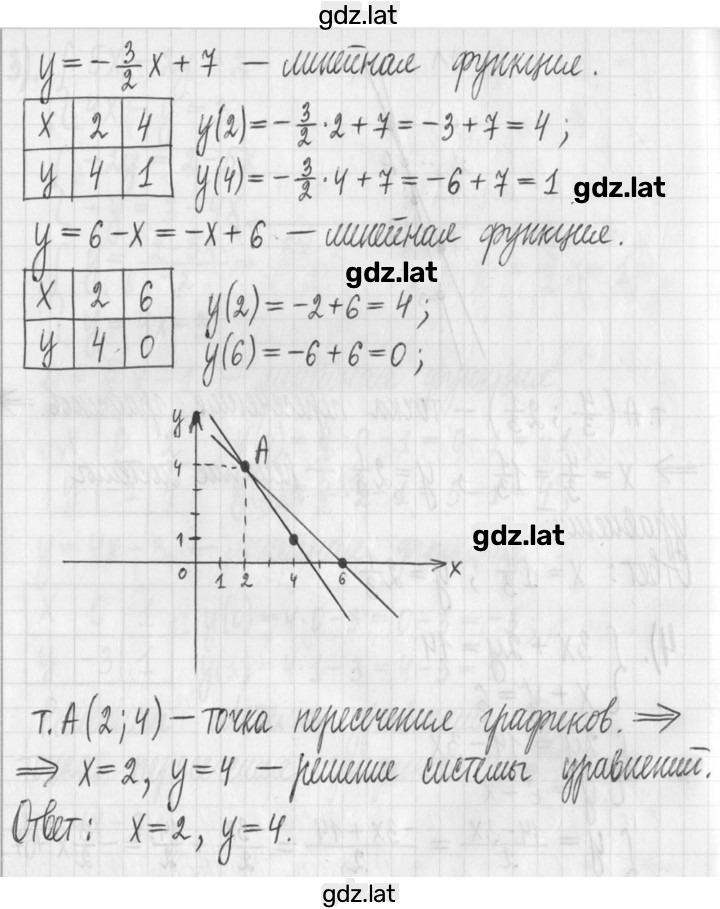 gdz.lat
y = -3/2 x + 7 — линейная функция.
x 2 4
y 4 1
y(2) = -3/2 · 2 + 7 = -3 + 7 = 4;
y(4) = -3/2 · 4 + 7 = -6 + 7 = 1
gdz.lat
y = 6 - x = -x + 6 — линейная функция.
gdz.lat
x 2 6
y 4 0
y(2) = -2 + 6 = 4;
y(6) = -6 + 6 = 0;
y
A
4
1
gdz.lat
0 1 2 4 6 x
т. A(2; 4) — точка пересечения графиков. ⇒
⇒ x = 2, y = 4 — решение системы уравнений.
Ответ: x = 2, y = 4.
gdz.lat